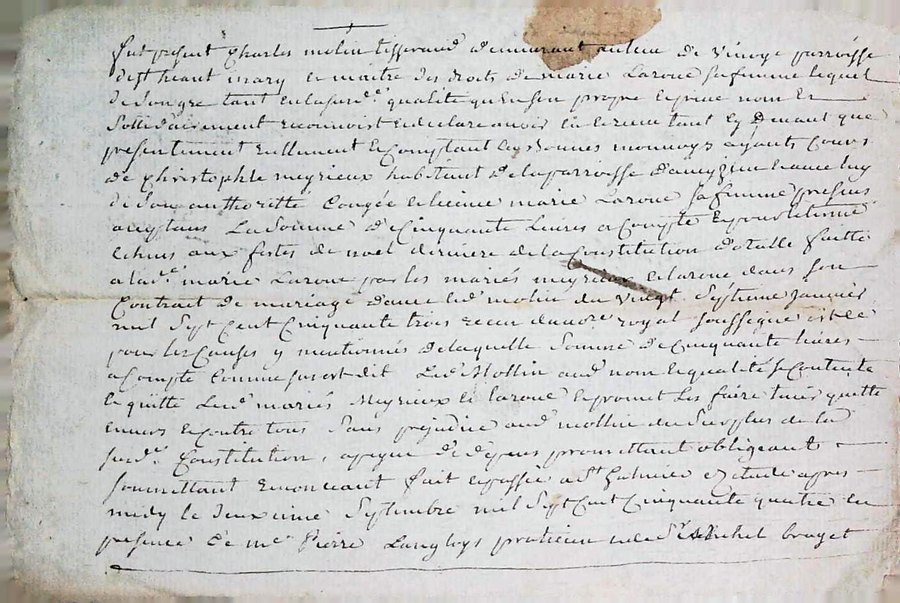 fut present Charles molin tisserand demeurant au lieu de vinoye parroisse
de st heant mary le maitre des droits de marie Laroue sa femme lequel
de son gre tant en la sus dte qualité qu'en son propre le prive nom et
sollidairement reconnoist et declare avoir eu le receu tant cy devant que
presentement reellement le Comptant en bonnes monnoys ayants cours
de Christophle meyrieux habitant de la parroisse
de son authoritté Congée et licence marie Laroue sa femme presens
acceptans La Somme de Cinquante Livres a Compte
echus aux festes de noel derniere de la Constitution dotalle faitte
a lad. marie Laroue par les mariés meyrieux et laroue dans son
Contrait de mariage avec led. molin du vingt Septieme Janvier
mil Sept Cent Cinquante trois receu du nore royal soussigné
pour les Causes y mentionnés de laquelle Somme de Cinquante livres
a Compte Comme sus est dit Led. Mollin aud. nom le qualité se Contente
le quitte Lesd. mariés Meyrieux et laroue le promet Les faire tenir quitte
envers le Contre tous Sans prejudice aud. mollin du Surplus de la
susd. Constitution, a peyne de depens promettant obligeant
soumettant renonceant fait le passé a St Galmier etude apres
midy le deuxieme Septembre mil Sept Cent Cinquante quatre en
presence de me Pierre Langloys praticien Sr Michel bouget